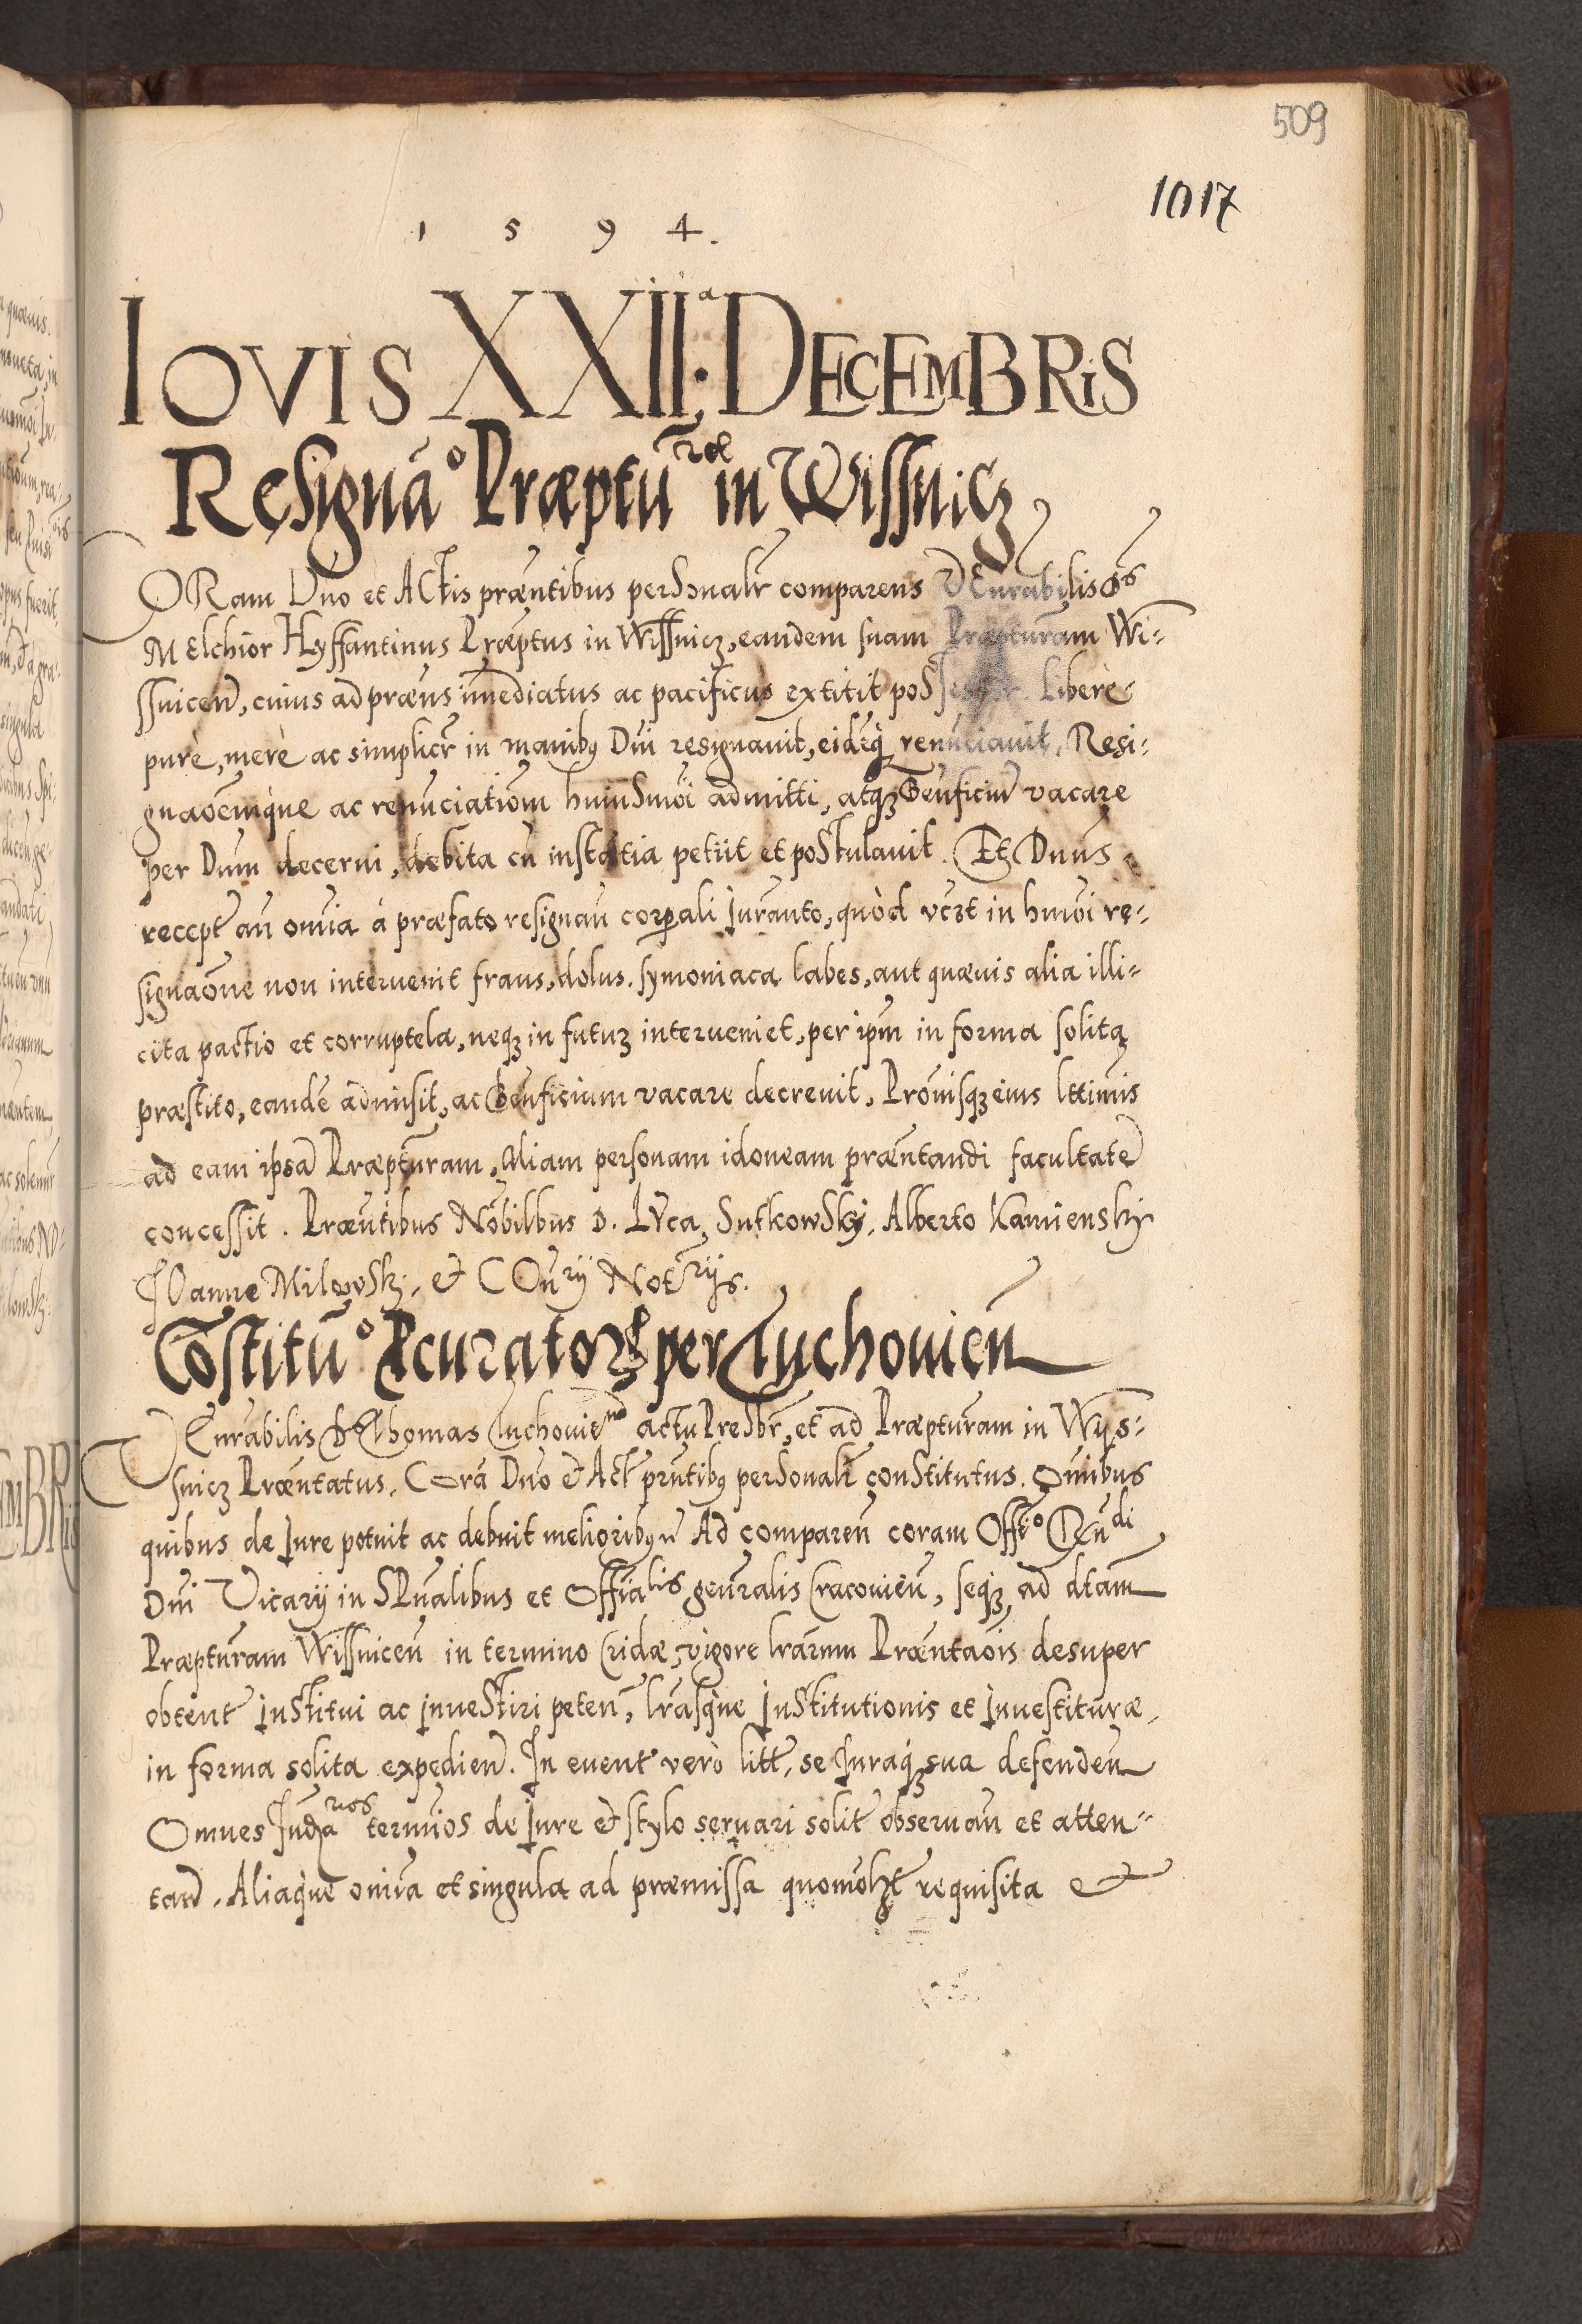 509
1017
1 5 9 4.
IOVIS XXII.ª DECEMBRIS
Resignão Præptũræ in Wissnicz
CORam Dno et ACtis præntibus perSonalr comparens VEnrabilis Ds
MElchior Hyffantinus Præptus in Wissnicz, eandem suam Præpturam Wi-
ssnicen̄, cuius ad præns im̄ediatus ac pacificus extitit posSessor. Liberè
purè, merè ac simplicr̄ in manibꝰ Dni resignauit, eidēq̃ renunciauit, Resi-
gnaōemq̀ue ac renunciatiōm huiuSmōi admitti, atqꝫ Benficiū vacare
per Dnm decerni, debita cū instātia petiit et poStulauit. Et Dnus
recept̄ an̄ omnia à præfato resignan̄ corpali Iurānto, quòd vc̄zt in hmōi re-
signaōne non interuenit fraus, dolus. symoniaca labes, aut quæuis alia illi-
cita pactio et corruptela, neqꝫ in futuꝝ interueniet, per ipm̄ in forma solita
præstito, eandē admisit, ac Benficium vacare decreuit, Prōuisqꝫ eius lttimis
ad eam ipsā Præpturam, Aliam personam idoneam præntandi facultatē
concessit. Præntibus Nobilbus D. LVca Sutkowsky, Alberto Kamiensky
IOanne Milowsky, et COn̄rij Not̄rijs.
Cōstitũo Pcuratoꝝ per Tuchouien̄
VEnrabilis D Thomas Tuchouiēnꝰ actu PreSbr̄, et ad Præpturam in Wys-
snicz Præntatus, Corā Dno et Act̄ prntibꝰ perSonalr̄ conStitutus. Omnibus
quibus de Iure potuit ac debuit melioribꝰ n̄ Ad comparen̄ coram Offto Rndi
Dni Vicarij in SPnalibus et Offialis genralis Cracouien̄, seqꝫ ad dtam
Præpturam Wissnicen̄ in termino Cridæ, vigore lrarum Præntaōis desuper
obtent̄ inStitui ac inueStiri peten̄, lrasq̀ue InStitutionis et Inuestituræ,
in forma solita expedien̄. In euent̄ verò litt̄, se Iuraqꝫ sua defenden̄
Omnes Iud̄arios terminos de Iure et stylo seruari solit̄ obseruan̄ et atten-
tand̄. Aliaq̀ue omnia et singula ad præmissa quomōlzt̄ requisita et